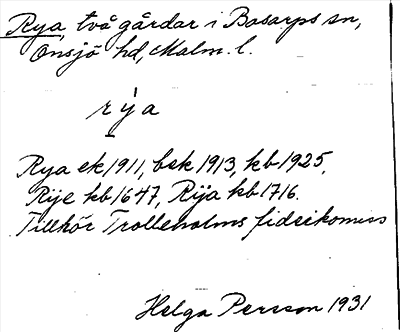 Rya, två gårdar i Bosarps sn,
Onsjö hd, Malm. l.
rya
Rya ek 1911, bsk 1913, kb 1925,
Rije kb 1647, Rija kb 1716.
Tillhör Trolleholms fideikomiss
Helga Persson 1931